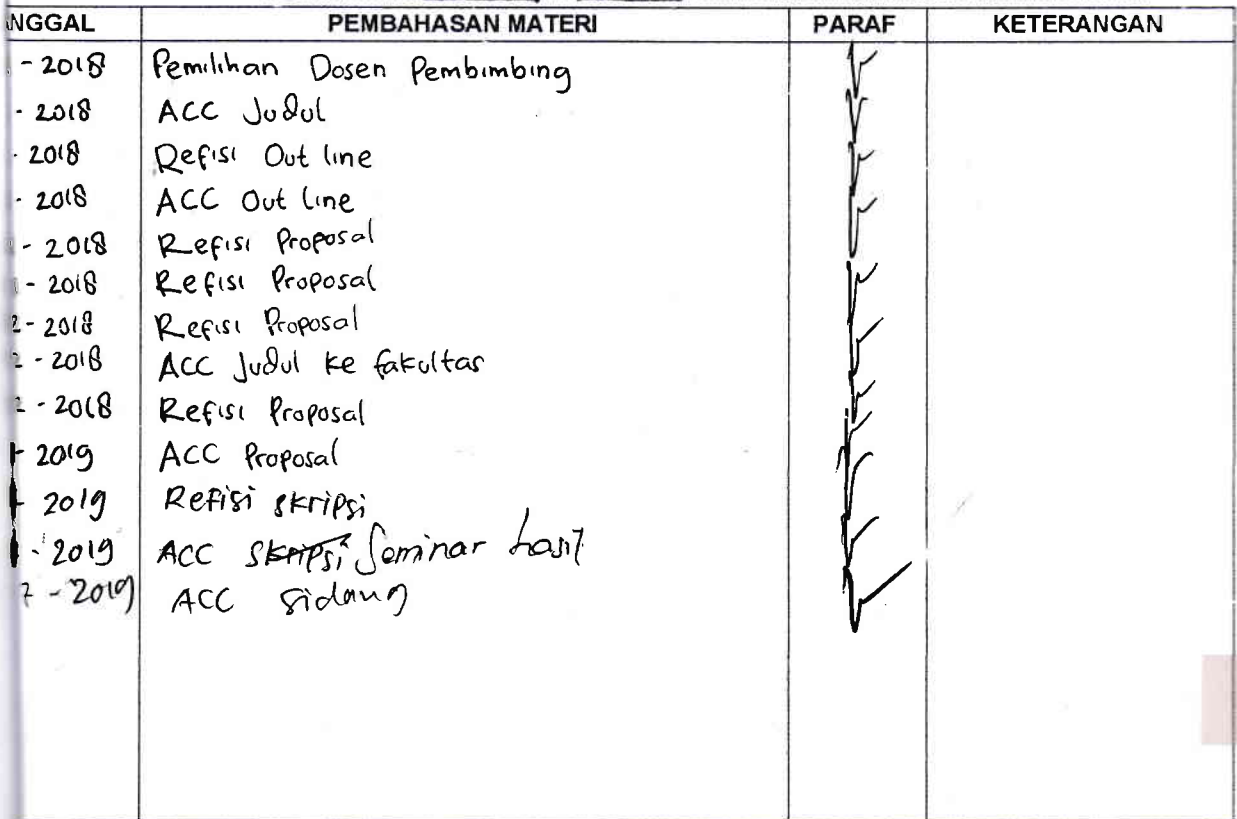 NGGAL PEMBAHASAN MATERI PARAF KETERANGAN
- 2018 Pemilihan Dosen Pembimbing
- 2018 ACC Judul
- 2018 Refisi Out line
- 2018 ACC Out line
- 2018 Refisi Proposal
- 2018 Refisi Proposal
2 - 2018 Refisi Proposal
2 - 2018 ACC Judul ke fakultas
2 - 2018 Refisi Proposal
- 2019 ACC Proposal
2019 Refisi skripsi
- 2019 ACC skripsi Seminar hasil
7 - 2019 ACC sidang